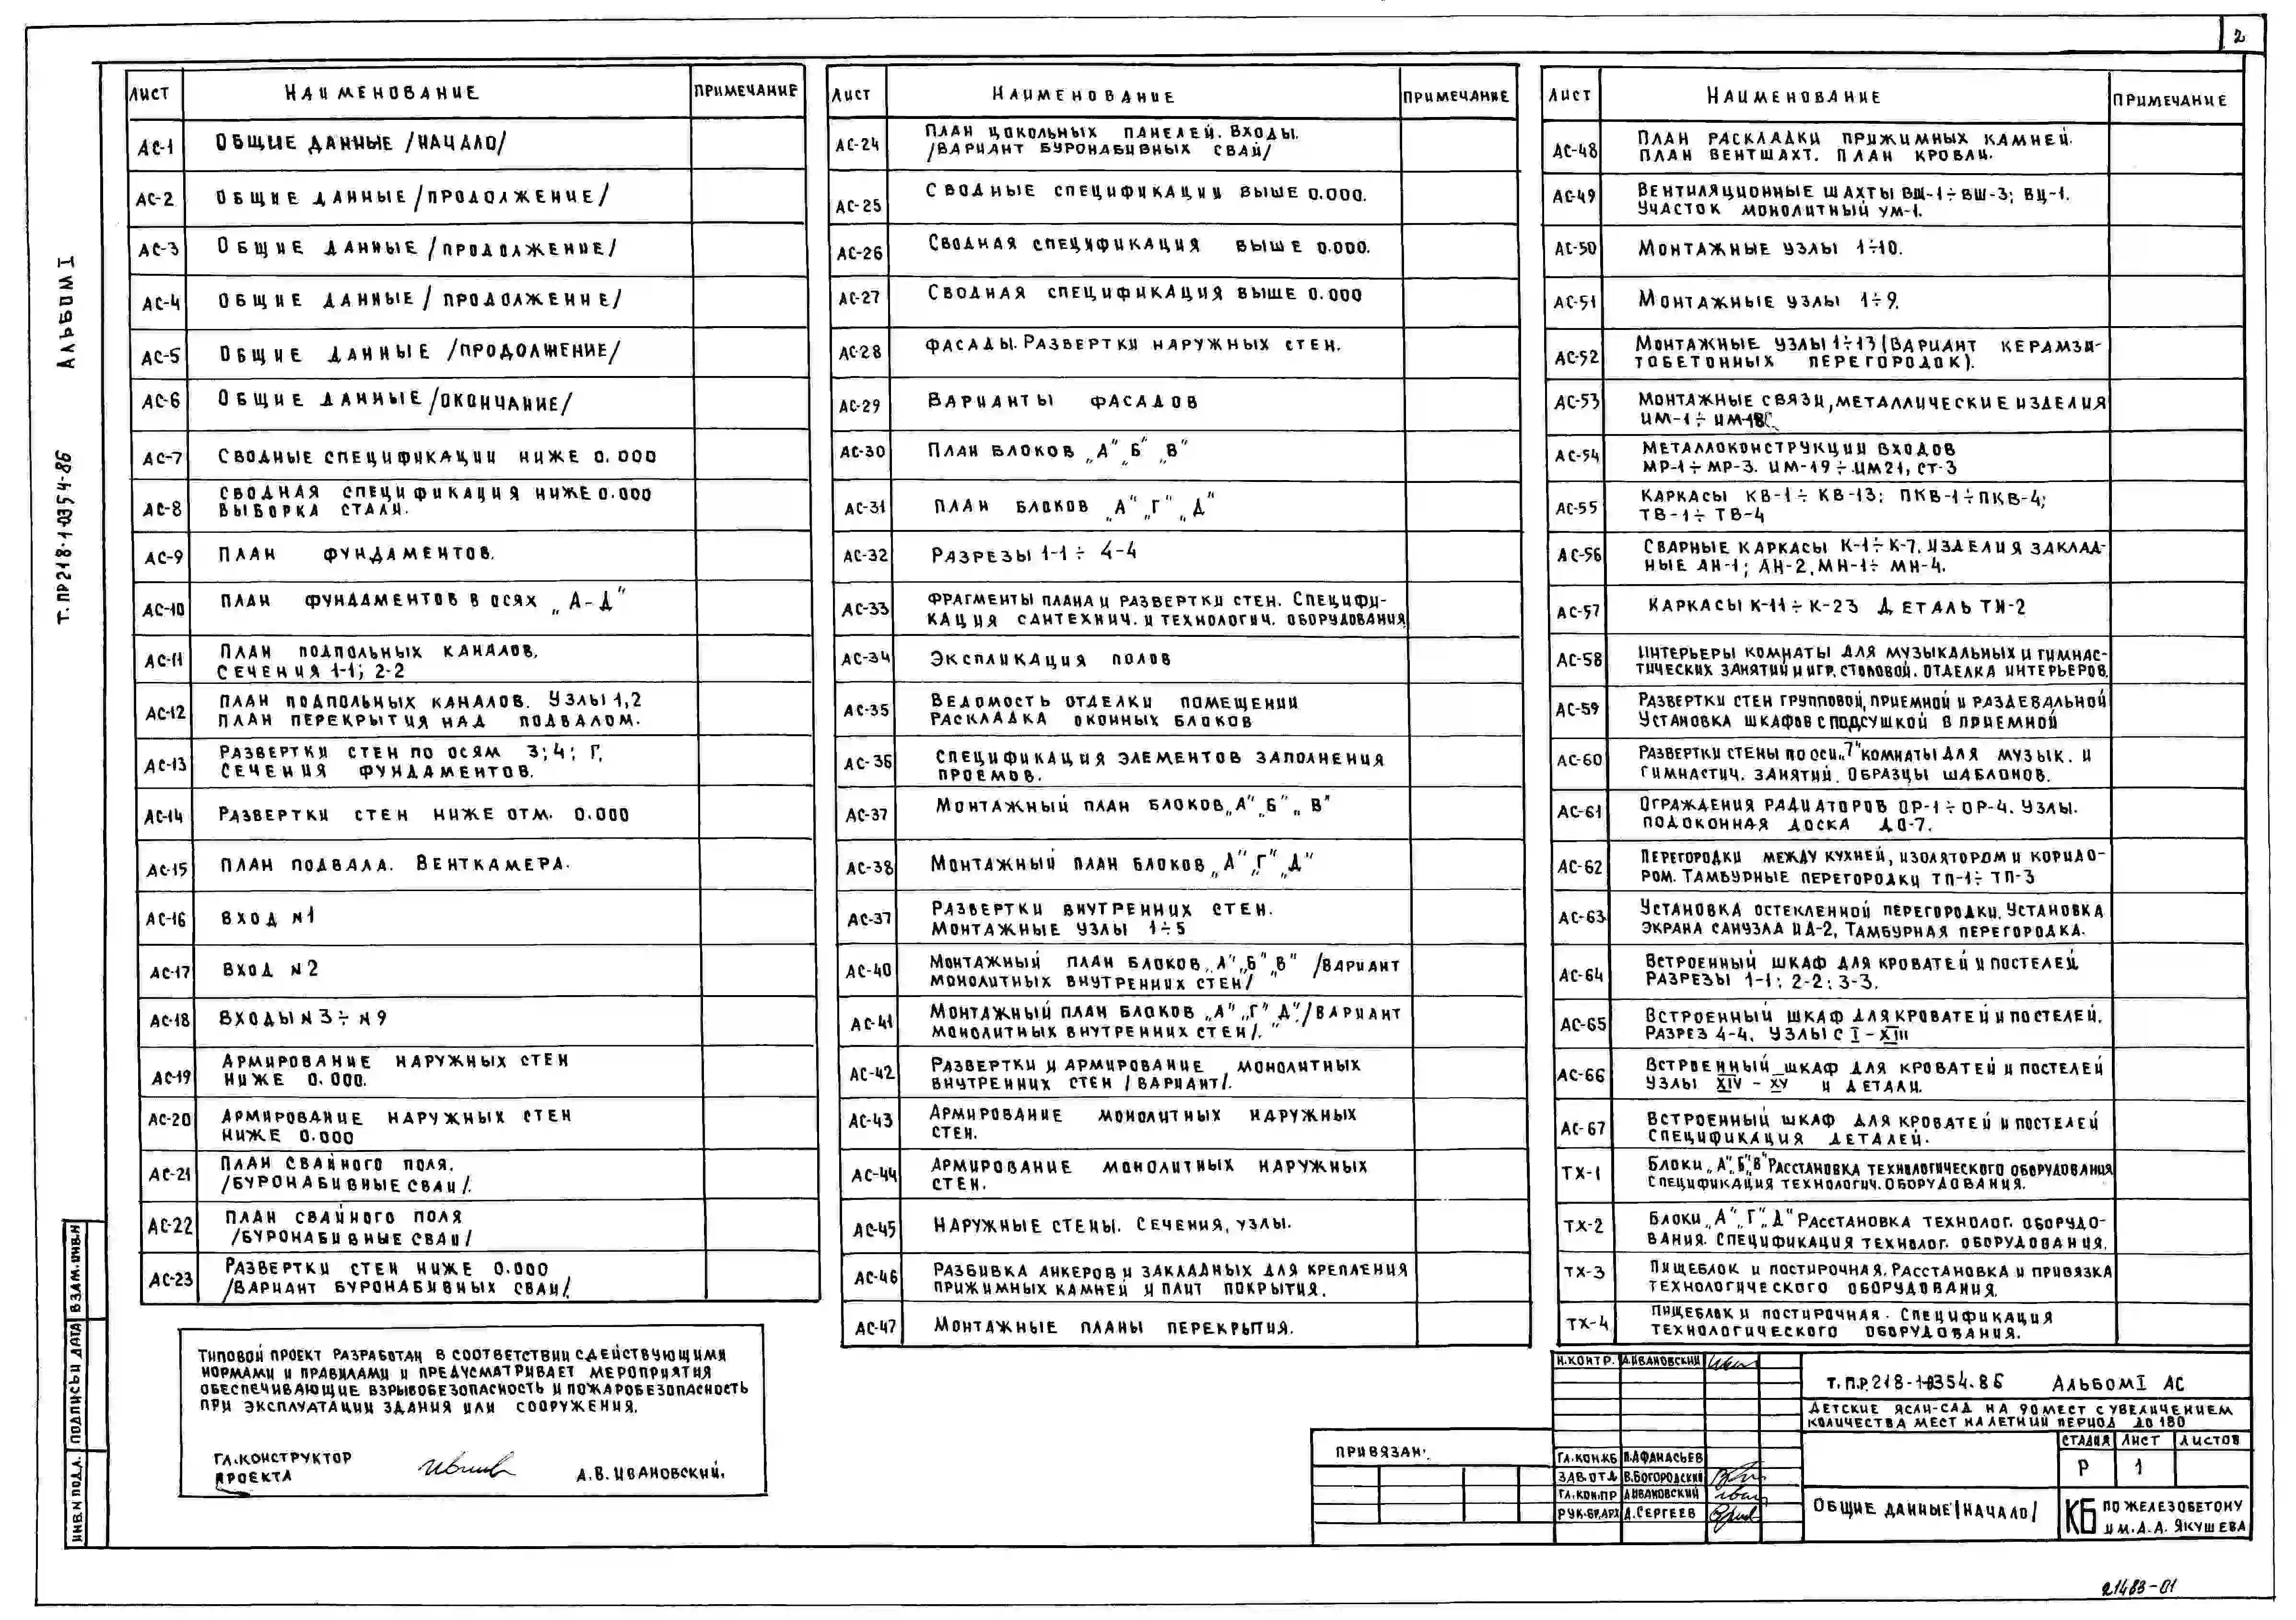 2
Альбом I
Т.ПР 218-1-0354-86
Лист Наименование Примечание
АС-1 Общие данные /начало/
АС-2 Общие данные /продолжение/
АС-3 Общие данные /продолжение/
АС-4 Общие данные /продолжение/
АС-5 Общие данные /продолжение/
АС-6 Общие данные /окончание/
АС-7 Сводные спецификации ниже 0.000
АС-8 Сводная спецификация ниже 0.000
Выборка стали.
АС-9 План фундаментов.
АС-10 План фундаментов в осях „А-Д"
АС-11 План подпольных каналов.
Сечения 1-1; 2-2
АС-12 План подпольных каналов. Узлы 1,2
План перекрытия над подвалом.
АС-13 Развертки стен по осям 3; 4; Г.
Сечения фундаментов.
АС-14 Развертки стен ниже отм. 0.000
АС-15 План подвала. Венткамера.
АС-16 Вход №1
АС-17 Вход №2
АС-18 Входы №3÷№9
АС-19 Армирование наружных стен
ниже 0.000.
АС-20 Армирование наружных стен
ниже 0.000
АС-21 План свайного поля.
/буронабивные сваи/.
АС-22 План свайного поля
/буронабивные сваи/
АС-23 Развертки стен ниже 0.000
/вариант буронабивных свай/.
Лист Наименование Примечание
АС-24 План цокольных панелей. Входы.
/вариант буронабивных свай/
АС-25 Сводные спецификации выше 0.000.
АС-26 Сводная спецификация выше 0.000.
АС-27 Сводная спецификация выше 0.000
АС-28 Фасады. Развертки наружных стен.
АС-29 Варианты фасадов
АС-30 План блоков „А" „Б" „В"
АС-31 План блоков „А" „Г" „Д"
АС-32 Разрезы 1-1÷4-4
АС-33 Фрагменты плана и развертки стен. Специфи-
кация сантехнич. и технологич. оборудования
АС-34 Экспликация полов
АС-35 Ведомость отделки помещений
Раскладка оконных блоков
АС-36 Спецификация элементов заполнения
проемов.
АС-37 Монтажный план блоков „А" „Б" „В"
АС-38 Монтажный план блоков „А" „Г" „Д"
АС-37 Развертки внутренних стен.
Монтажные узлы 1÷5
АС-40 Монтажный план блоков „А" „Б" „В" /вариант
монолитных внутренних стен/
АС-41 Монтажный план блоков „А" „Г" „Д" /вариант
монолитных внутренних стен/.
АС-42 Развертки и армирование монолитных
внутренних стен /вариант/.
АС-43 Армирование монолитных наружных
стен.
АС-44 Армирование монолитных наружных
стен.
АС-45 Наружные стены. Сечения, узлы.
АС-46 Разбивка анкеров и закладных для крепления
прижимных камней и плит покрытия.
АС-47 Монтажные планы перекрытия.
Лист Наименование Примечание
АС-48 План раскладки прижимных камней.
План вентшахт. План кровли.
АС-49 Вентиляционные шахты ВШ-1÷ВШ-3; ВЦ-1.
Участок монолитный УМ-1.
АС-50 Монтажные узлы 1÷10.
АС-51 Монтажные узлы 1÷9.
АС-52 Монтажные узлы 1÷13 (вариант керамзи-
тобетонных перегородок).
АС-53 Монтажные связи, металлические изделия
ИМ-1÷ИМ-18
АС-54 Металлоконструкции входов
МР-1÷МР-3. ИМ-19÷ИМ21, СТ-3
АС-55 Каркасы КВ-1÷КВ-13; ПКВ-1÷ПКВ-4;
ТВ-1÷ТВ-4
АС-56 Сварные каркасы К-1÷К-7. Изделия заклад-
ные АН-1; АН-2, МН-1÷МН-4.
АС-57 Каркасы К-11÷К-23 Деталь ТИ-2
АС-58 Интерьеры комнаты для музыкальных и гимнас-
тических занятий и игр. столовой. Отделка интерьеров.
АС-59 Развертки стен групповой, приемной и раздевальной
Установка шкафов с подсушкой в приемной
АС-60 Развертки стены по оси „7" комнаты для музык. и
гимнастич. занятий. Образцы шаблонов.
АС-61 Ограждения радиаторов ОР-1÷ОР-4. Узлы.
Подоконная доска ДО-7.
АС-62 Перегородки между кухней, изолятором и коридо-
ром. Тамбурные перегородки ТП-1÷ТП-3
АС-63 Установка остекленной перегородки. Установка
экрана санузла ИД-2, Тамбурная перегородка.
АС-64 Встроенный шкаф для кроватей и постелей
Разрезы 1-1; 2-2; 3-3.
АС-65 Встроенный шкаф для кроватей и постелей.
Разрез 4-4. Узлы с I-XIII
АС-66 Встроенный шкаф для кроватей и постелей
Узлы XIV - XV и детали.
АС-67 Встроенный шкаф для кроватей и постелей
Спецификация деталей.
ТХ-1 Блоки „А", „Б", „В" Расстановка технологического оборудования
Спецификация технологич. оборудования.
ТХ-2 Блоки „А" „Г" „Д" Расстановка технолог. оборудо-
вания. Спецификация технолог. оборудования.
ТХ-3 Пищеблок и постирочная. Расстановка и привязка
технологического оборудования.
ТХ-4 Пищеблок и постирочная. Спецификация
технологического оборудования.
Типовой проект разработан в соответствии с действующими
нормами и правилами и предусматривает мероприятия
обеспечивающие взрывобезопасность и пожаробезопасность
при эксплуатации здания или сооружения.
Гл. конструктор
проекта А.В. Ивановский.
Взам. инв. №
Подпись и дата
Инв. № подл.
Привязан:
Н. контр. А.Ивановский
Гл. кон. КБ П.Афанасьев
Зав. отд. В.Богородский
Гл. кон. пр А.Ивановский
Рук. бр. арх А.Сергеев
Т.П.Р. 218-1-0354.86 Альбом I АС
Детские ясли-сад на 90 мест с увеличением
количества мест на летний период до 180
Стадия Лист Листов
Р 1
Общие данные /начало/
КБ по железобетону
им. А.А. Якушева
21483-01